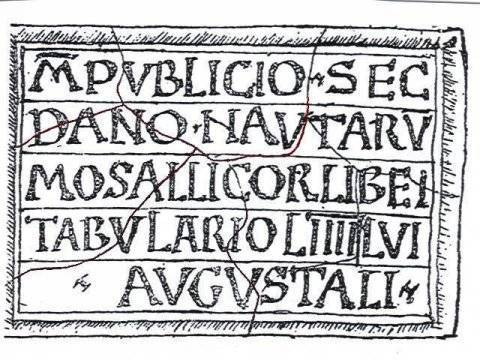 M PVBLICIO SEC
DANO · NAVTARV
MOSALLICOR LIBEI
TABVLARIO LIIIIILVI
AVGVSTALI